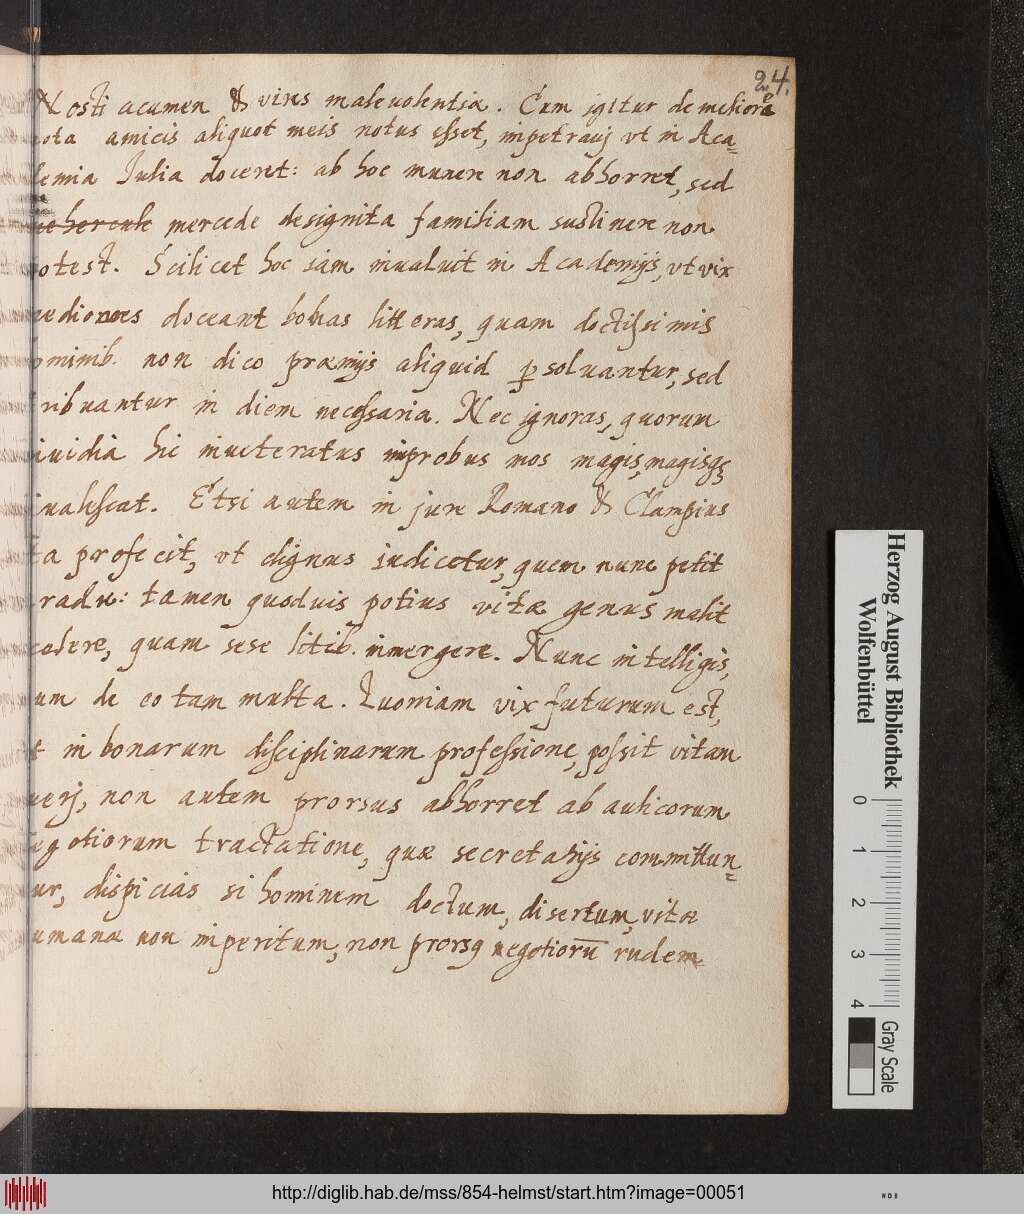 24.
Nosti acumen & vires malevolentia. Cum igitur de meliore
nota amicis aliquot meis notus esset, impetravj vt in Aca=
demia Julia doceret: ab hoc munere non abhorret, sed
mehercule mercede designata familiam sustinere non
potest. Scilicet hoc iam invaluit in Academijs, vt vix
mediocres doceant bonas litteras, quam doctissimis
hominib. non dico præmijs aliquid persolvantur, sed
tribuantur in diem necessaria. Nec ignoras, quorum
invidia hic inveteratus improbus mos magis, magisq;
invalescat. Etsi autem in jure Romano &
ita profecit, vt dignus iudicetur, quem nunc petit
gradu: tamen quoduis potius vitæ genus malit
cedere, quam sese litib. immergere. Nunc intelligis,
cum de eo tam multa. Quoniam vix futurum est,
vt in bonarum disciplinarum professione, possit vitam
tuerj, non autem prorsus abhorret ab aulicorum
negotiorum tractatione, quæ secretarijs committun=
tur, dispicias si hominem doctum, disertum, vitæ
humanæ non imperitum, non prorsq negotiorū rudem
Herzog August Bibliothek
Wolfenbüttel
0 1 2 3 4
Gray Scale
http://diglib.hab.de/mss/854-helmst/start.htm?image=00051
WDB